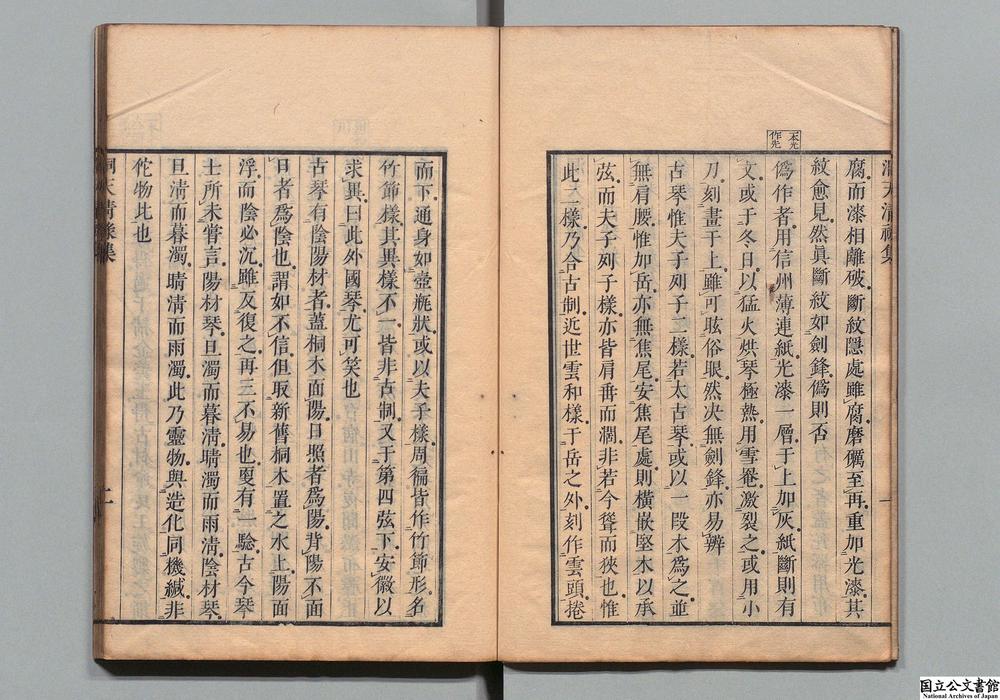 洞天清祿集
腐而漆相離破斷紋隱處雖腐磨礪至再重加光漆其
紋愈見然眞斷紋如劍鋒僞則否
僞作者用信州薄連紙光漆一層于上加灰紙斷則有
文或于冬日以猛火烘琴極熱用雪罨激裂之或用小
刀刻畫于上雖可眩俗眼然決無劍鋒亦易辨
古琴惟夫子列子二樣若太古琴或以一段木爲之並
無肩腰惟加岳亦無焦尾安焦尾處則橫嵌堅木以承
弦而夫子列子樣亦皆肩垂而濶非若今聳而狹也惟
此二樣乃合古制近世雲和樣于岳之外刻作雲頭捲
一
本光
作先
而下通身如壺瓶狀或以夫子樣周徧皆作竹節形名
竹節樣其異樣不一皆非古制又于第四弦下安徽以
求異曰此外國琴尤可笑也
古琴有陰陽材者蓋桐木面陽日照者爲陽背陽不面
日者爲陰也謂如不信但取新舊桐木置之水上陽面
浮而陰必沉雖反復之再三不易也更有一驗古今琴
士所未嘗言陽材琴旦濁而暮淸晴濁而雨淸陰材琴
旦淸而暮濁晴淸而雨濁此乃靈物與造化同機緘非
佗物此也
洞天清祿集
二
国立公文書館
National Archives of Japan